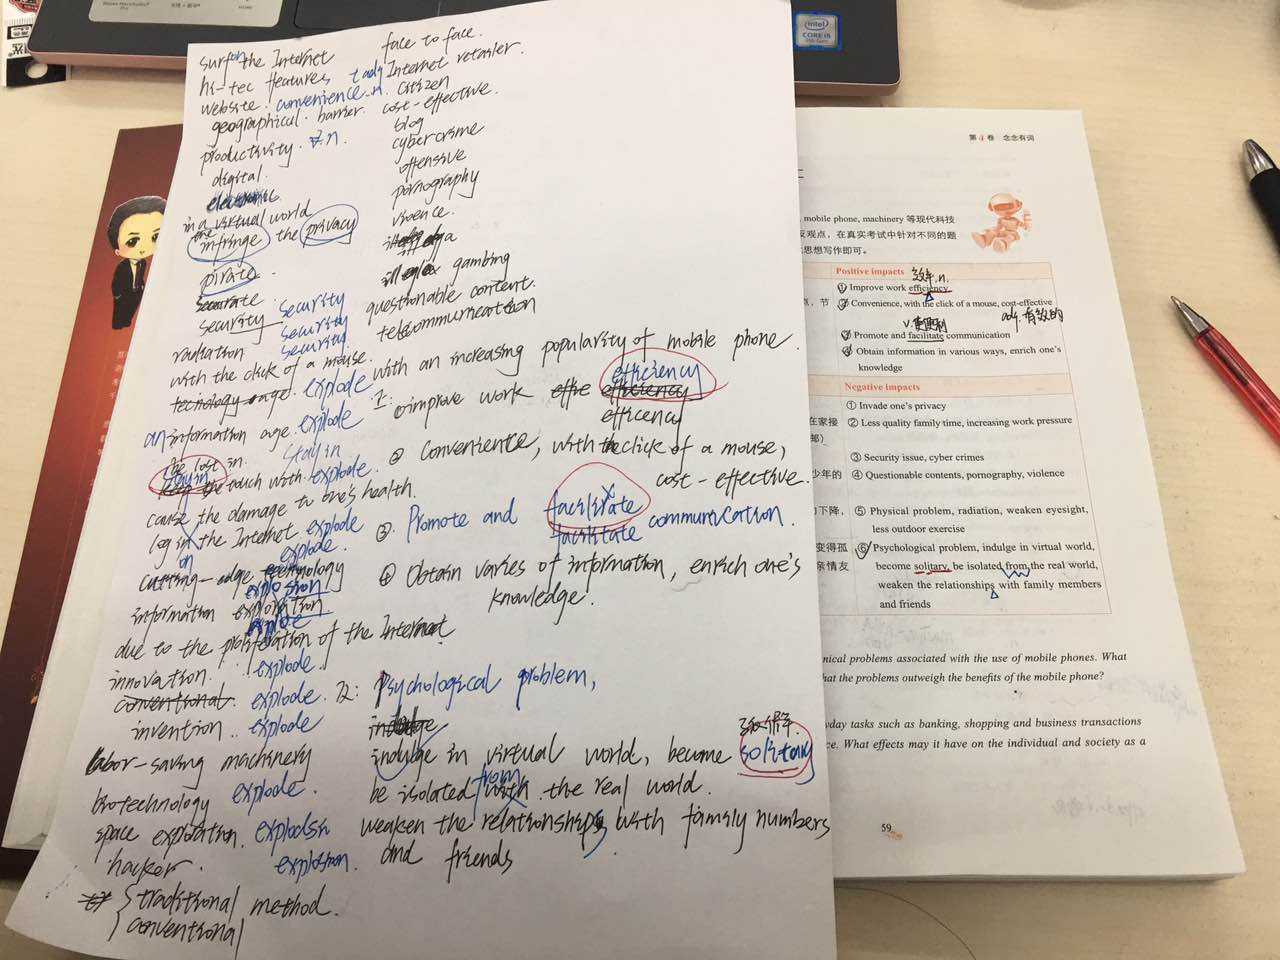 surf on the Internet
hi-tec features
website. convenience. n.
geographical. barrier.
productivity. n.
digital.
in a virtual world
infringe the privacy
pirate.
security security
security
radiation security
with the click of a mouse.
explode
an information age. explode
stay in
stay in touch with. explode.
cause the damage to one's health.
log in the Internet explode
on explode.
cutting-edge technology
explosion
information
due to the proliferation of the Internet
innovation. explode.
conventional. explode.
invention. explode
labor-saving machinery
biotechnology explode.
space exploration.
hacker. explosion.
traditional method.
conventional
face to face.
Internet retailer.
citizen
cost-effective.
blog
cybercrime
offensive
pornography
gambing
questionable content.
telecommunication
with an increasing popularity of mobile phone.
efficiency
1: ①improve work efficiency
efficency
② Convenience, with the click of a mouse,
cost-effective.
③. Promote and facilitate communication.
facilitate
④ Obtain varies of information, enrich one's
knowledge.
2: Psychological problem,
indulge in virtual world, become solitary
from
be isolated with the real world.
weaken the relationships with family numbers
and friends
intel
CORE i5
第4卷 念念有词
mobile phone, machinery 等现代科技
反观点，在真实考试中针对不同的题
思想写作即可。
Positive impacts 效率.n.
① Improve work efficiency
② Convenience, with the click of a mouse, cost-effective
adj. 有效的
③ Promote and facilitate communication
④ Obtain information in various ways, enrich one's
knowledge
Negative impacts
① Invade one's privacy
② Less quality family time, increasing work pressure
③ Security issue, cyber crimes
④ Questionable contents, pornography, violence
⑤ Physical problem, radiation, weaken eyesight,
less outdoor exercise
⑥ Psychological problem, indulge in virtual world,
become solitary, be isolated from the real world,
weaken the relationships with family members
and friends
nical problems associated with the use of mobile phones. What
hat the problems outweigh the benefits of the mobile phone?
yday tasks such as banking, shopping and business transactions
ce. What effects may it have on the individual and society as a
59